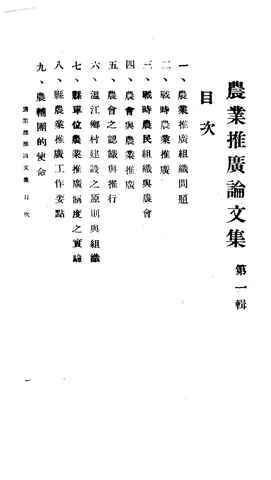 農業推廣論文集 第一輯
目次
一、農業推廣組織問題
二、戰時農業推廣
三、戰時農民組織與農會
四、農會與農業推廣
五、農會之認識與推行
六、溫江鄉村建設之原則與組織
七、縣單位農業推廣制度之實論
八、縣農業推廣工作要點
九、農輔團的使命
農業推廣論文集 目次
一